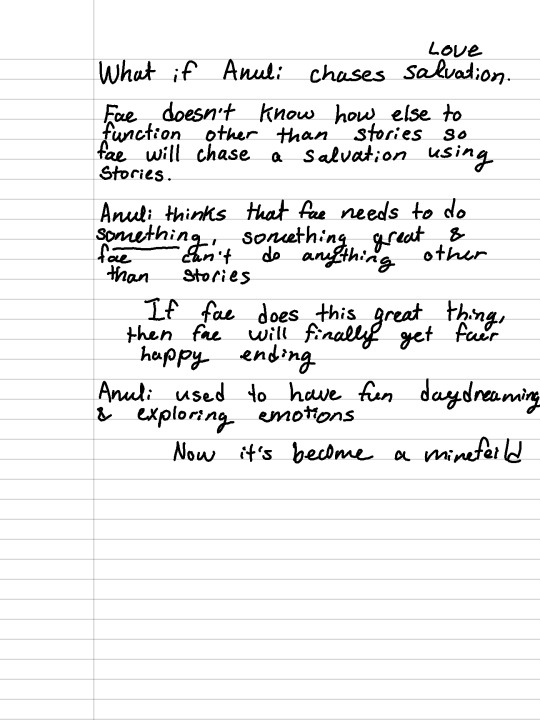 Love
What if Anuli chases salvation.
Fae doesn't know how else to
function other than stories so
fae will chase a salvation using
stories.
Anuli thinks that fae needs to do
something, something great &
fae can't do anything other
than stories
If fae does this great thing,
then fae will finally get faer
happy ending
Anuli used to have fun daydreaming
& exploring emotions
Now it's become a minefeild